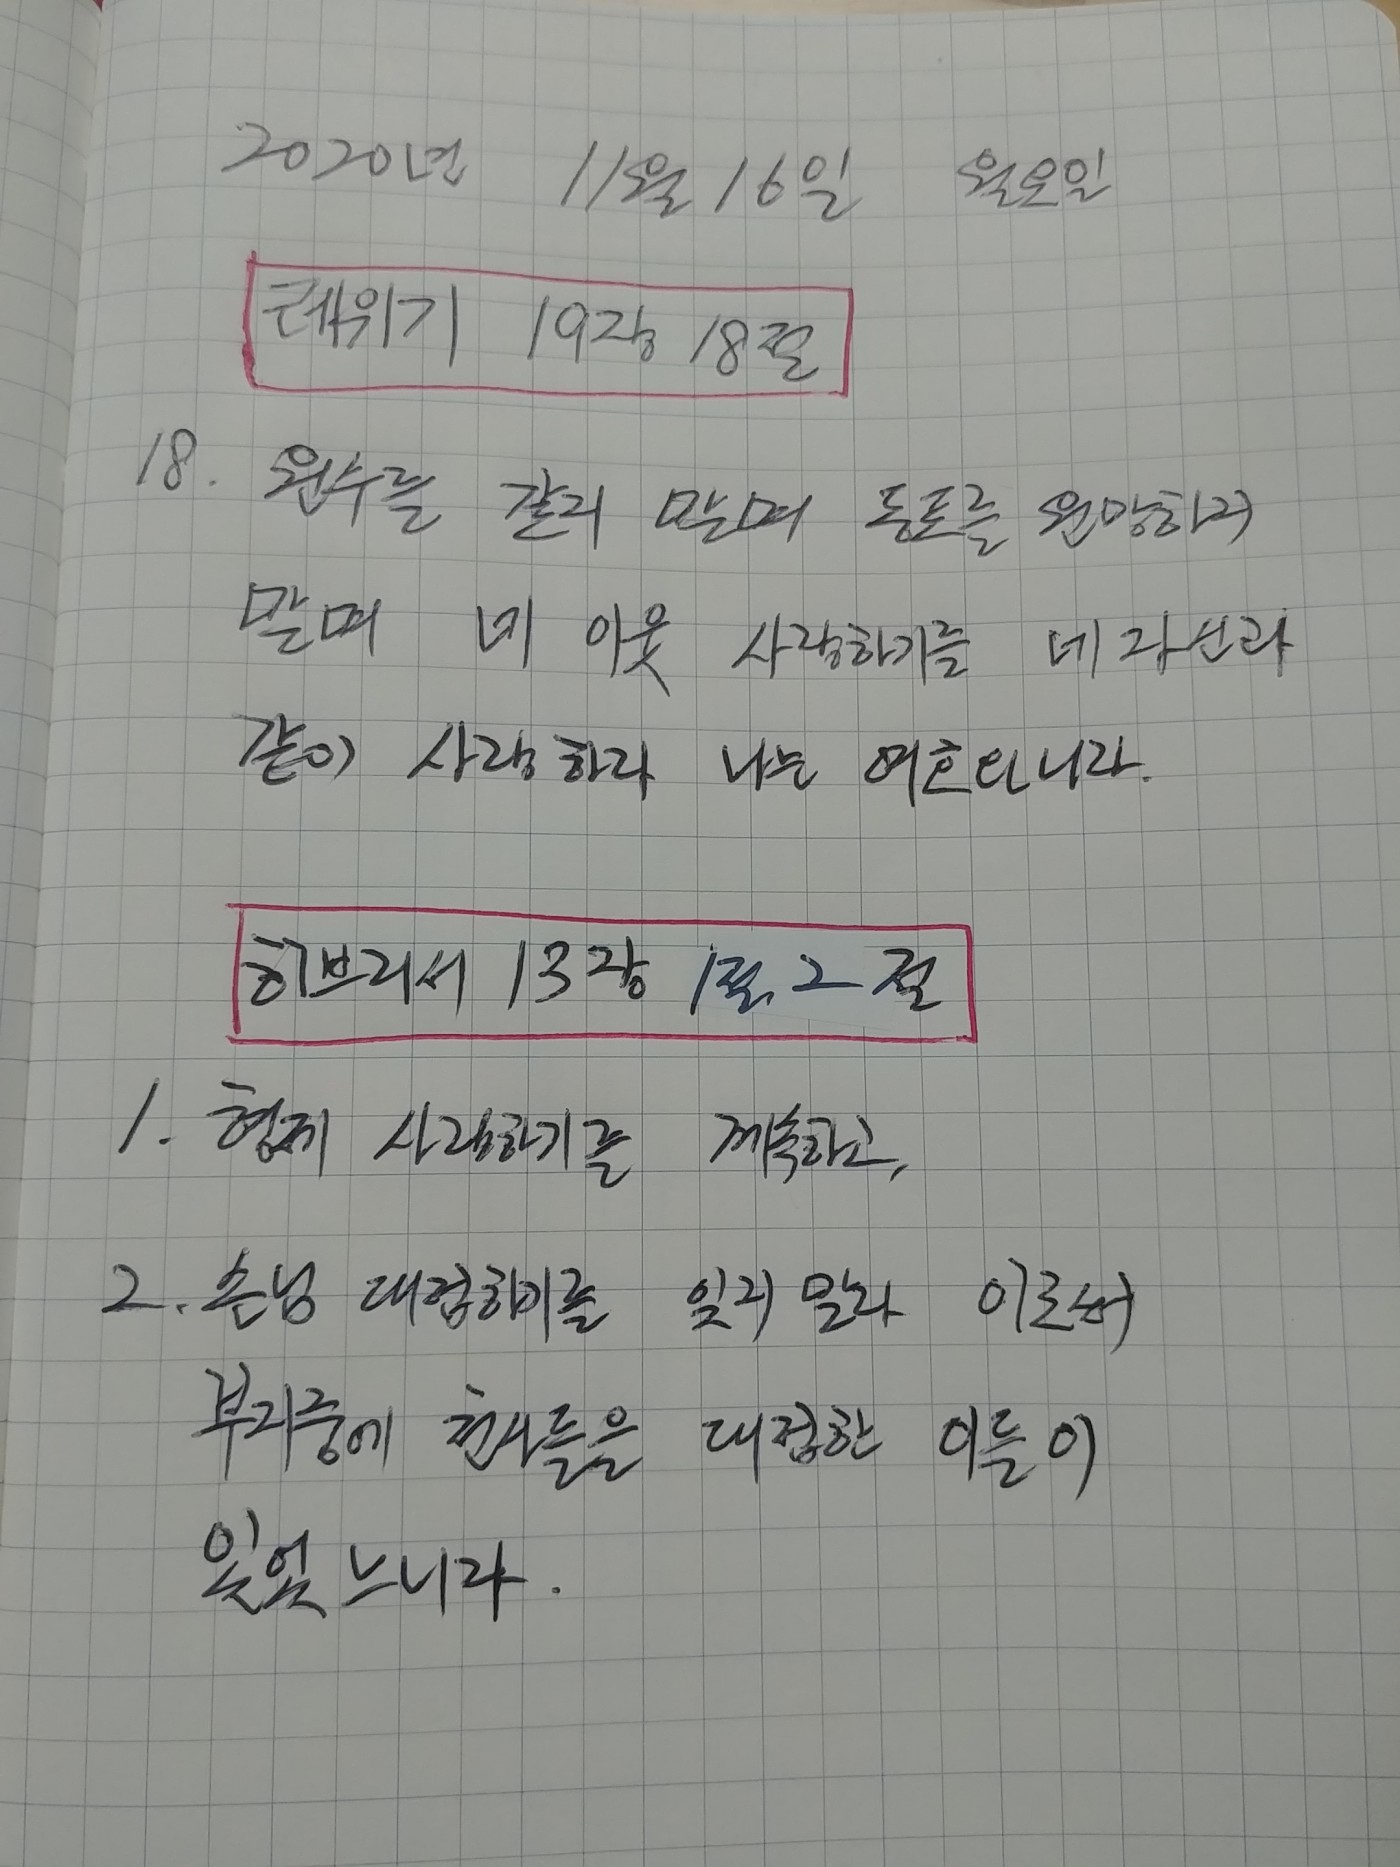 2020년 11월 16일 월요일
레위기 19장 18절
18. 원수를 갚지 말며 동포를 원망하지
말며 네 이웃 사랑하기를 네 자신과
같이 사랑하라 나는 여호와니라.
히브리서 13장 1절, 2절
1. 형제 사랑하기를 계속하고,
2. 손님 대접하기를 잊지 말라 이로써
부지중에 천사들을 대접한 이들이
있었느니라.